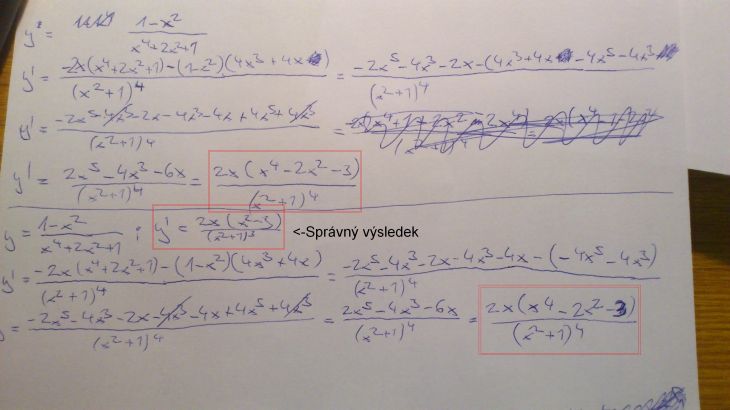 y = (1-x²)/(x⁴+2x²+1)
y' = (-2x(x⁴+2x²+1)-(1-x²)(4x³+4x))/(x²+1)⁴ = (-2x⁵-4x³-2x-(4x³+4x-4x⁵-4x³))/(x²+1)⁴
y' = (-2x⁵-4x³-2x-4x³-4x+4x⁵+4x³)/(x²+1)⁴ =
y' = (2x⁵-4x³-6x)/(x²+1)⁴ = (2x(x⁴-2x²-3))/(x²+1)⁴
y = (1-x²)/(x⁴+2x²+1) ; y' = (2x(x²-3))/(x²+1)³ <-Správný výsledek
y' = (-2x(x⁴+2x²+1)-(1-x²)(4x³+4x))/(x²+1)⁴ = (-2x⁵-4x³-2x-4x³-4x-(-4x⁵-4x³))/(x²+1)⁴
= (-2x⁵-4x³-2x-4x³-4x+4x⁵+4x³)/(x²+1)⁴ = (2x⁵-4x³-6x)/(x²+1)⁴ = (2x(x⁴-2x²-3))/(x²+1)⁴